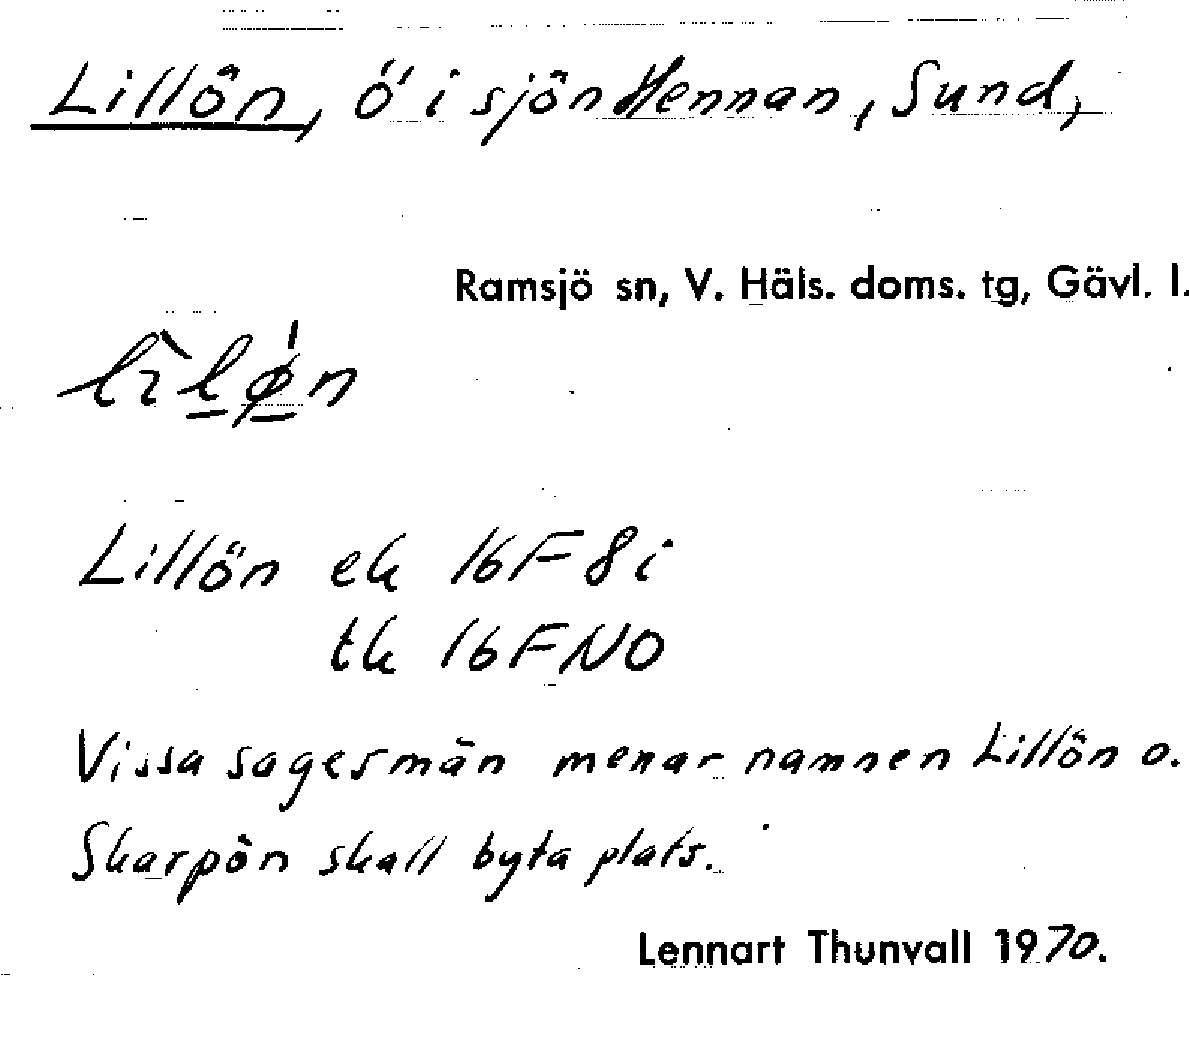 Lillön, ö i sjön Hennan, Sund,
Ramsjö sn, V. Häls. doms. tg, Gävl. l.
Lillön ek 16F 8i
tk 16F NO
Vissa sagesmän menar namnen Lillön o.
Skarpön skall byta plats.
Lennart Thunvall 1970.